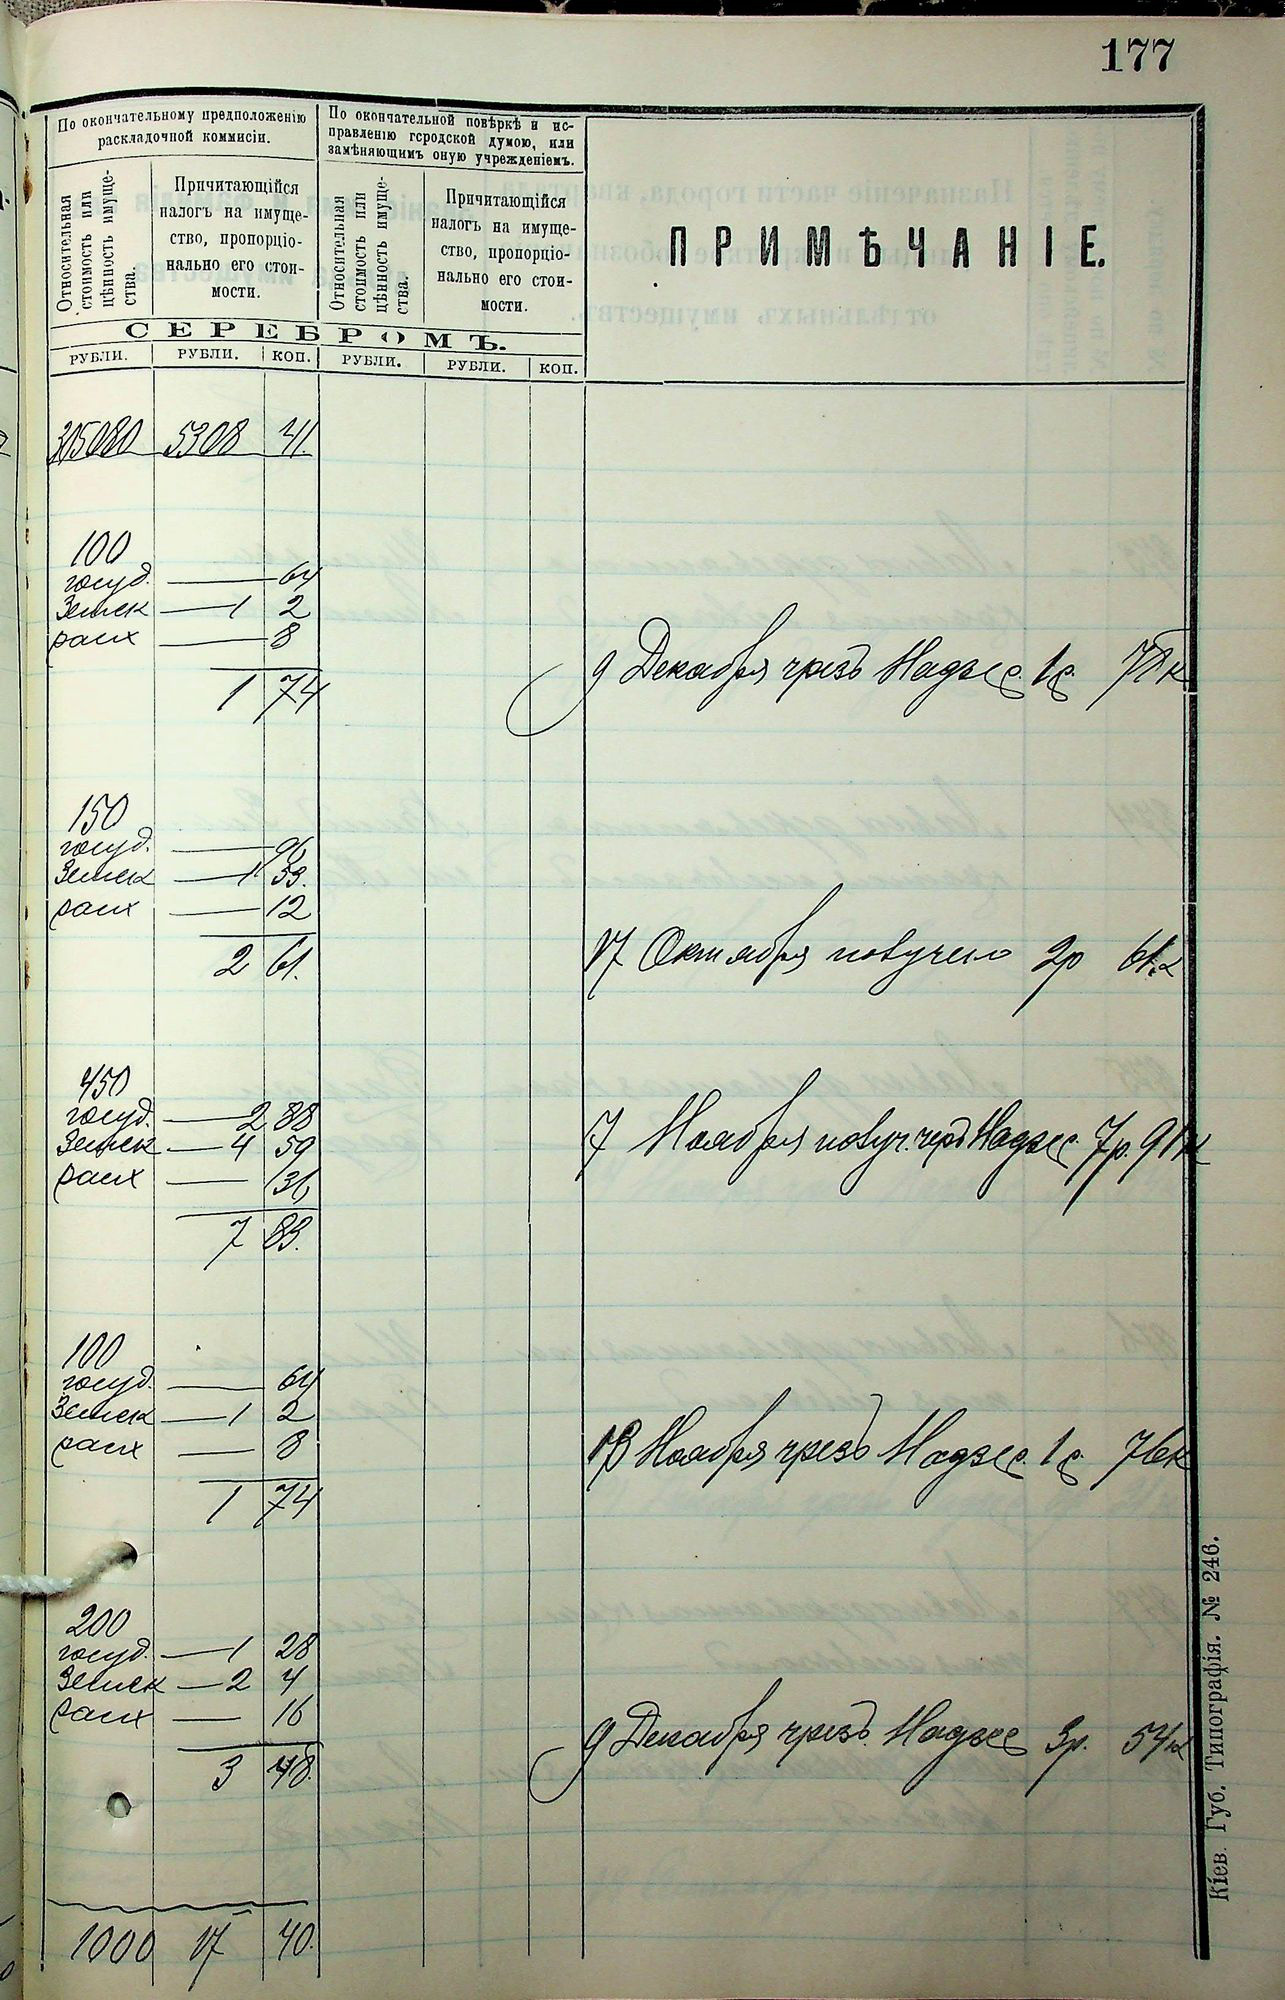 177
По окончательному предположенію
раскладочной коммисіи.
По окончательной повѣркѣ и ис-
правленію городской думою, или
замѣняющимъ оную учрежденіемъ.
Относительная
стоимость или
цѣнность имуще-
ства.
Причитающійся
налогъ на имуще-
ство, пропорціо-
нально его стои-
мости.
Относительная
стоимость или
цѣнность имуще-
ства.
Причитающійся
налогъ на имуще-
ство, пропорціо-
нально его стои-
мости.
ПРИМѢЧАНІЕ.
СЕРЕБРОМЪ.
РУБЛИ. РУБЛИ. КОП. РУБЛИ. РУБЛИ. КОП.
305080 5308 41.
100
госуд. — 64
Земск — 1 2
расх — 8
1 74
9 Декабря чрезъ Надзс. 1р. 78к
150
госуд. — 96
Земск — 1 53.
расх — 12
2 61.
17 Октября получено 2р 61к
450
госуд. — 2 88
Земск — 4 59
расх — 36
7 83.
7 Ноября получ. чрезъ Надзс. 7р. 91к
100
госуд. — 64
Земск — 1 2
расх — 8
1 74
13 Ноября чрезъ Надзс. 1р. 76к
200
госуд. — 1 28
Земск — 2 4
расх — 16
3 48.
9 Декабря чрезъ Надзс 3р. 54к
1000 17 40.
Кіев. Губ. Типографія. № 246.